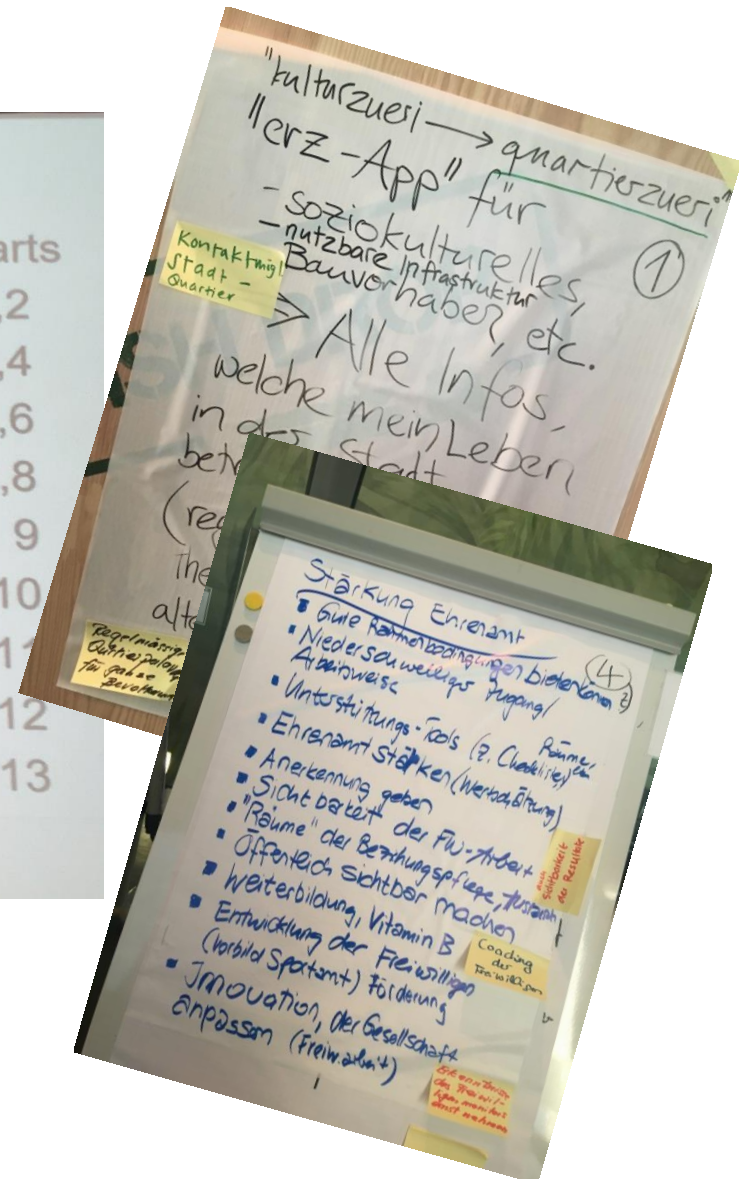 arts
,2
,4
,6
,8
9
10
12
13
"kulturzueri → quartierzueri"
"erz-App" für
- soziokulturelles,
- nutzbare Infrastruktur
Bauvorhaben, etc.
1
Kontaktmögl
Stadt -
Quartier
⇒ Alle Infos,
welche mein Leben
in der Stadt
betr
(reg
The
alte
Stärkung Ehrenamt
4
• Gute Rahmenbedingungen bieten
• Niederschwelliger Zugang/
Arbeitsweise
• Unterstützungs-Tools (z. Checkliste)
Räume,
• Ehrenamt stärken (Wertschätzung)
• Anerkennung geben
• Sichtbarkeit der FW-Arbeit
• "Räume" der Beziehungspflege,
• Öffentlich sichtbar machen
• Weiterbildung, Vitamin B
• Entwicklung der Freiwilligen
(Vorbild Sportamt) Förderung
• Innovation, der Gesellschaft
anpassen (Freiw.arbeit)
auch
Sichtbarkeit
der Resultate
Coaching
der
Freiwilligen